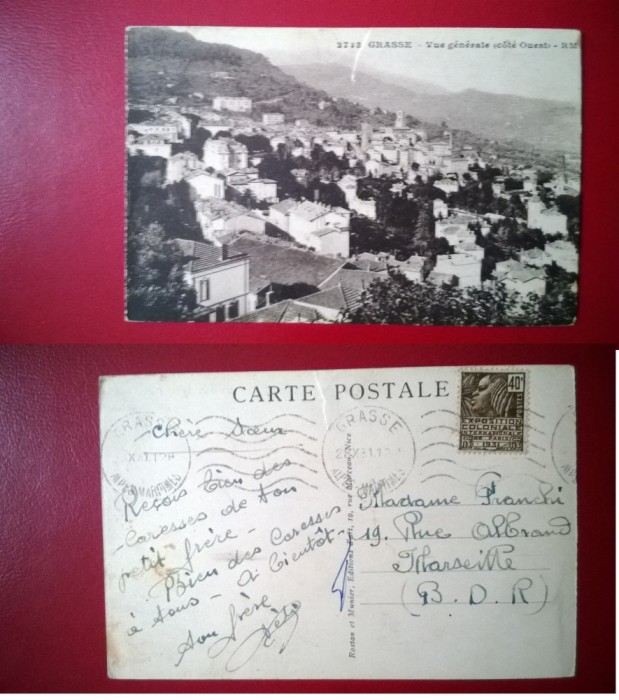 2722 GRASSE - Vue générale (côté Ouest) - RM
CARTE POSTALE
GRASSE
XI.1128
ALPES MARITIMES
GRASSE
ALPES MARITIMES
40c
POSTES
EXPOSITION
COLONIALE
INTERNATIONALE
PARIS
1931
Chère Soeur
Reçois bien des
caresses de ton
petit frère -
Bien des Caresses
à tous - A bientôt -
Ton frère
Rostan et Munier, Editions d'art, 10, rue Marceau, Nice
Madame Franchi
19. Rue Albrand
Marseille
(B. D. R)